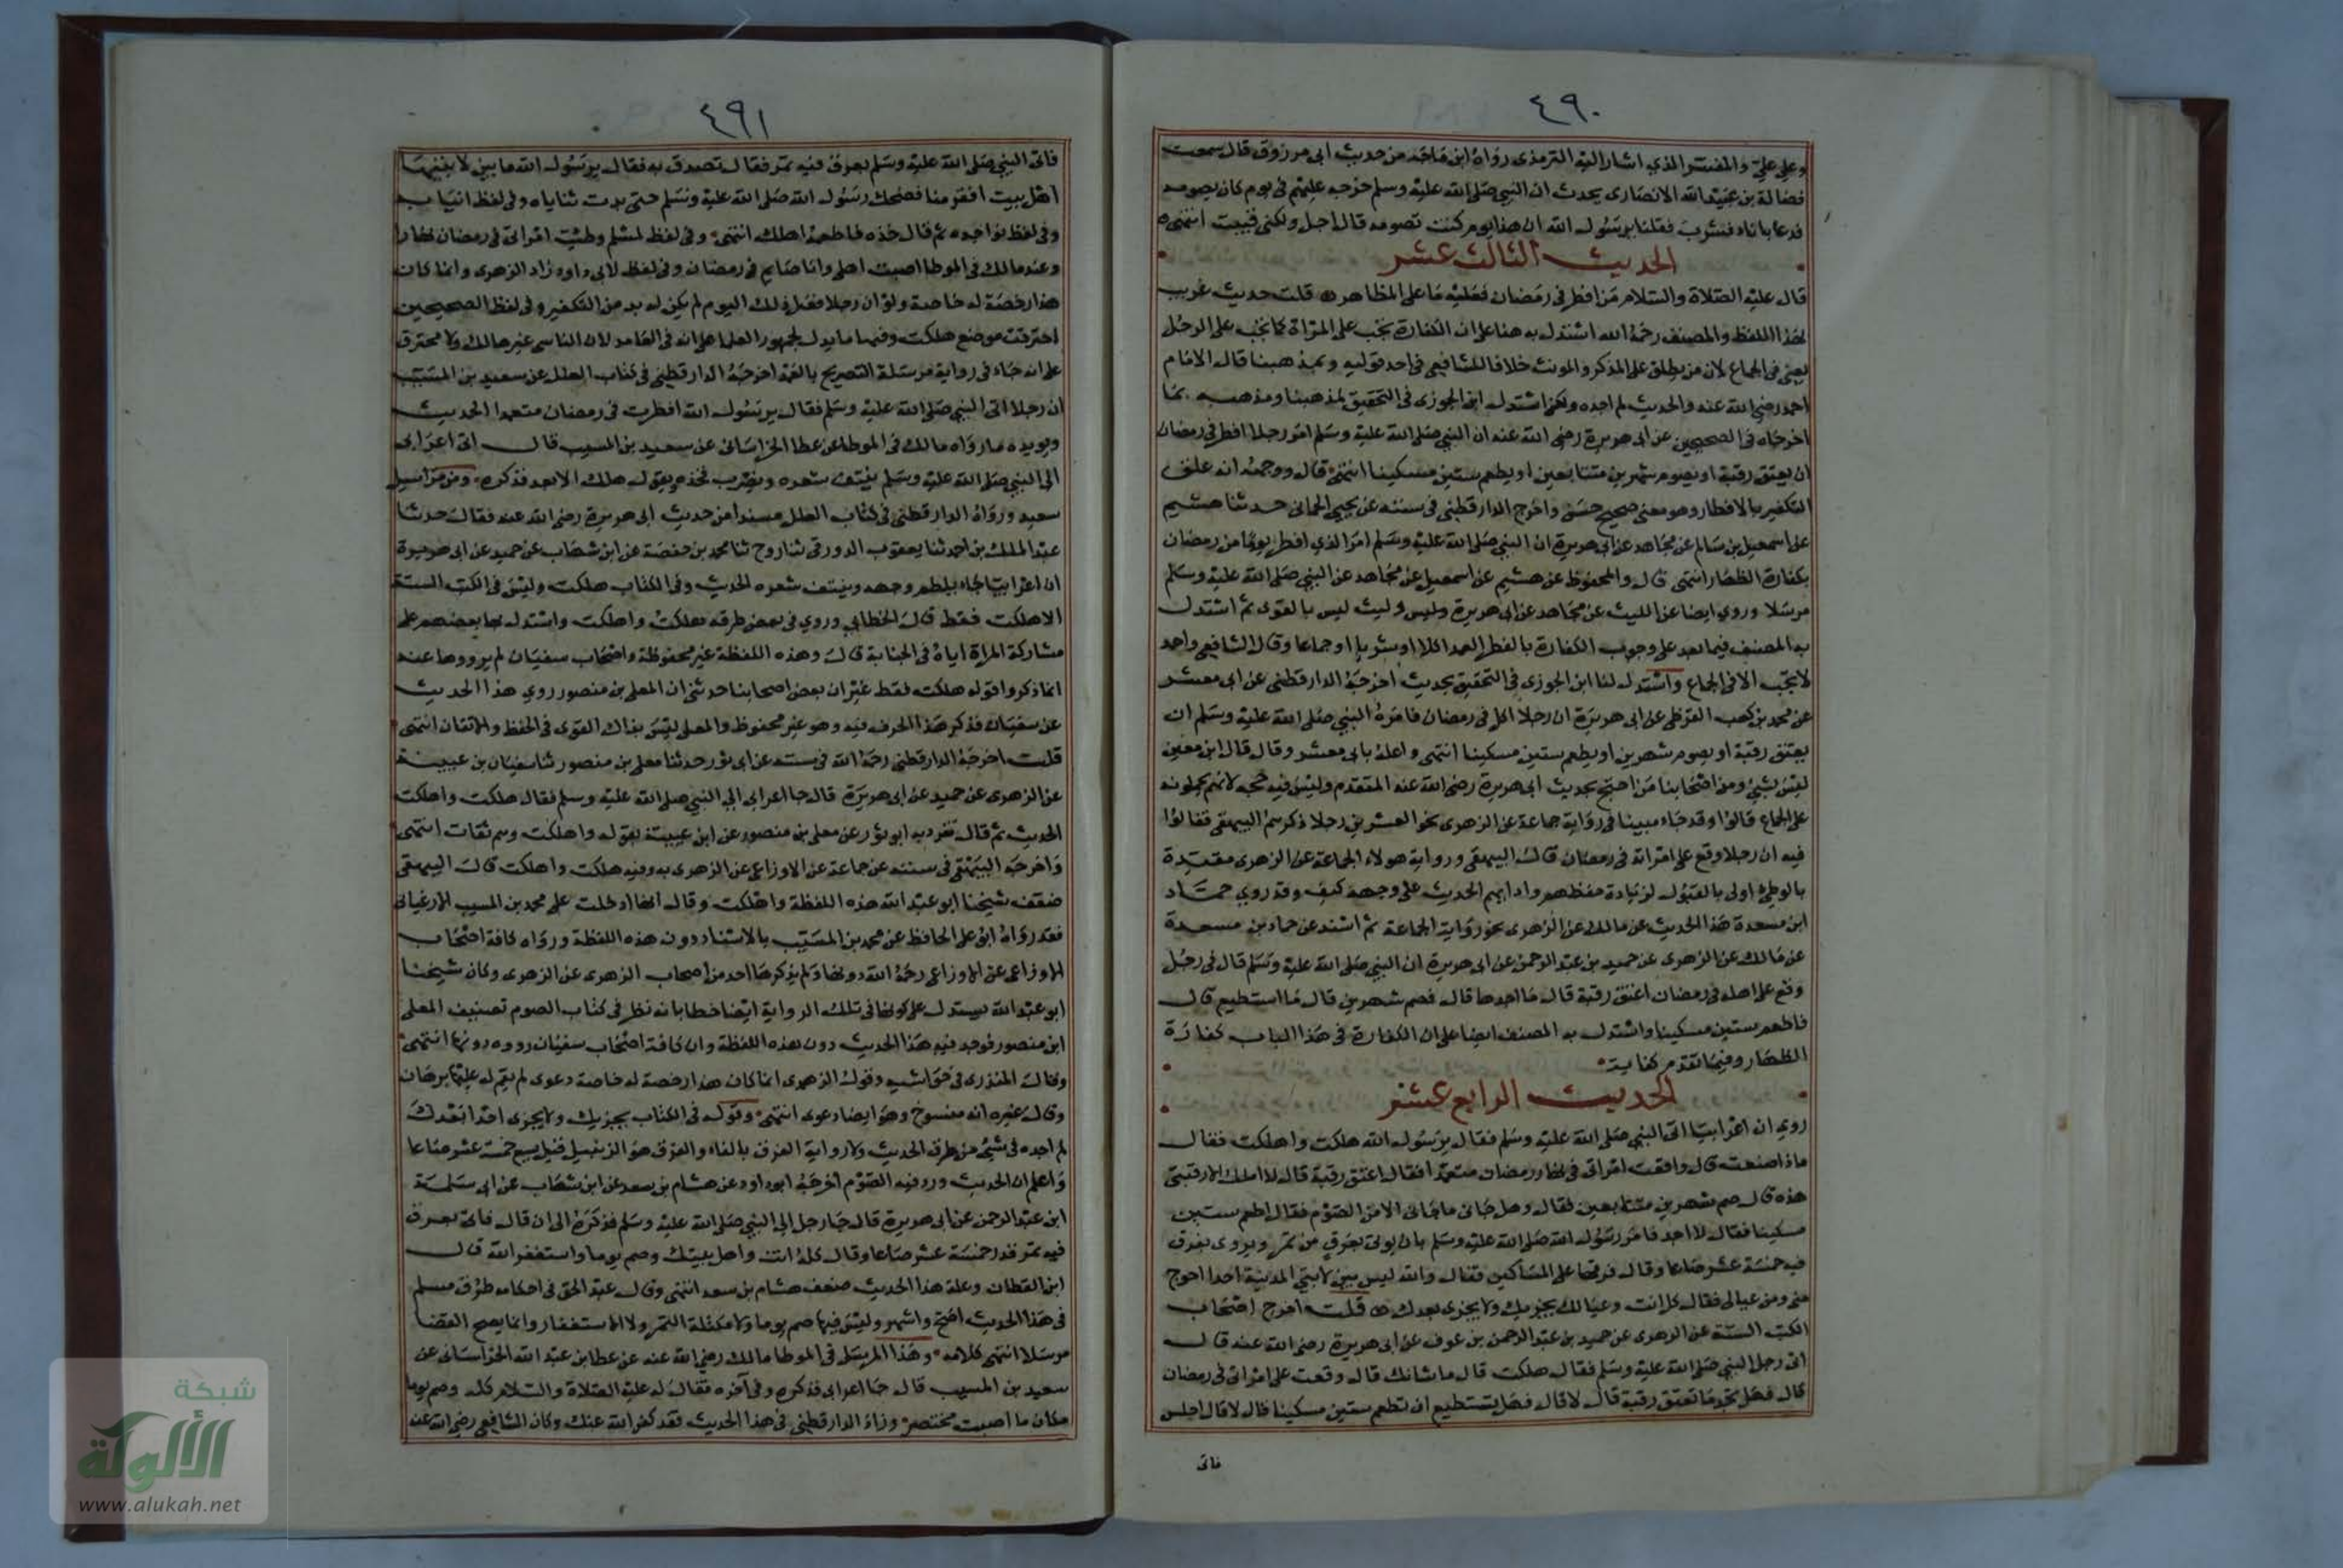 ٤٩٠
وعلي علي والمفسر الذي اشار اليه الترمذي رواه ابن ماجه من حديث ابي مرزوق قال سمعت
فضالة بن عبيد الله الانصاري يحدث ان النبي صلى الله عليه وسلم خرج عليهم في يوم كان يصومه
فدعا باناء فشرب فقلنا يرسول الله ان هذا يوم كنت تصومه قال اجل ولكني قيت انتهى
الحديث الثالث عشر
قال عليه الصلاة والسلام من افطر في رمضان فعليه ما على المظاهر قلت حديث غريب
بهذا اللفظ والمصنف رحمه الله استدل به هنا على ان الكفارة تجب على المراة كما تجب على الرجل
يعني في الجماع لان من يطلق على المذكر والمونث خلافا للشافعي في احد قوليه وبمذهبنا قال الامام
احمد رضي الله عنه والحديث لم اجده ولكن استدل ابن الجوزي في التحقيق لمذهبنا ومذهبه بما
اخرجاه في الصحيحين عن ابي هريرة رضي الله عنه ان النبي صلى الله عليه وسلم امر رجلا افطر في رمضان
ان يعتق رقبة او يصوم شهرين متتابعين او يطعم ستين مسكينا انتهى قال ووجهه انه علق
التكفير بالافطار وهو معنى صحيح حسن واخرج الدارقطني في سننه عن يحيي الحماني حدثنا هشيم
عن اسمعيل بن سالم عن مجاهد عن ابي هريرة ان النبي صلى الله عليه وسلم امر الذي افطر يوما من رمضان
بكفارة الظهار انتهى قال والمحفوظ عن هشيم عن اسمعيل عن مجاهد عن النبي صلى الله عليه وسلم
مرسلا وروي ايضا عن الليث عن مجاهد عن ابي هريرة وليس وليث ليس بالقوى ثم استدل
به المصنف فيما بعد على وجوب الكفارة بالفطر العمد اكلا او شربا او جماعا وقال الشافعي واحمد
لا تجب الا في الجماع واستدل لنا ابن الجوزي في التحقيق بحديث اخرجه الدارقطني عن ابي معشر
عن محمد بن كعب القرظي عن ابي هريرة ان رجلا اكل في رمضان فامره النبي صلى الله عليه وسلم ان
يعتق رقبة او يصوم شهرين او يطعم ستين مسكينا انتهى واعله بابي معشر وقال قال ابن معين
ليس بشي ومن اصحابنا من احتج بحديث ابي هريرة رضي الله عنه المتقدم وليس فيه حجه لانهم يحملونه
على الجماع قالوا وقد جاء مبينا في رواية جماعة عن الزهري نحو العشرين رجلا ذكرهم البيهقي فقالوا
فيه ان رجلا وقع على امراته في رمضان قال البيهقي ورواية هولاء الجماعة عن الزهري مقيدة
بالوطئ اولى بالقبول لزيادة حفظهم واداهم الحديث على وجهه كيف وقد روي حماد
ابن مسعدة هذا الحديث عن مالك عن الزهري نحو رواية الجماعة ثم اسند عن حماد بن مسعدة
عن مالك عن الزهري عن حميد بن عبد الرحمن عن ابي هريرة ان النبي صلى الله عليه وسلم قال في رجل
وقع على اهله في رمضان اعتق رقبة قال ما اجدها قال فصم شهرين قال ما استطيع قال
فاطعم ستين مسكينا واستدل به المصنف ايضا على ان الكفارة في هذا الباب كفارة
الظهار وفيما تقدم كفاية
الحديث الرابع عشر
روي ان اعرابيا اتى النبي صلى الله عليه وسلم فقال يرسول الله هلكت واهلكت فقال
ماذا صنعت قال واقعت امراتي في نهار رمضان متعمدا فقال اعتق رقبة قال لا املك الا رقبتي
هذه قال صم شهرين متتابعين فقال وهل جاني ما جاني الا من الصوم فقال اطعم ستين
مسكينا فقال لا اجد فامر رسول الله صلى الله عليه وسلم بان يوتى بعرق من تمر ويروى بفرق
فيه خمسة عشر صاعا وقال فرقها على المساكين فقال والله ليس بين لابتي المدينة احدا احوج
مني ومن عيالي فقال كل انت وعيالك يجزيك ولا يجزي بعدك قلت اخرج اصحاب
الكتب الستة عن الزهري عن حميد بن عبد الرحمن بن عوف عن ابي هريرة رضي الله عنه قال
اتى رجل النبي صلى الله عليه وسلم فقال هلكت قال ما شانك قال وقعت على امراتي في رمضان
قال فهل تجد ما تعتق رقبة قال لا قال فهل تستطيع ان تطعم ستين مسكينا قال لا قال اجلس
فاتى
٤٩١
فاتى النبي صلى الله عليه وسلم بعرق فيه تمر فقال تصدق به فقال يرسول الله ما بين لابتيها
اهل بيت افقر منا فضحك رسول الله صلى الله عليه وسلم حتى بدت ثناياه وفي لفظ انيابه
وفي لفظ نواجده ثم قال خذه فاطعمه اهلك انتهى وفي لفظ لمسلم وطئت امراتي في رمضان نهارا
وعند مالك في الموطا اصبت اهلي وانا صايم في رمضان وفي لفظ لابي داود زاد الزهري وانما كان
هذا رخصة له خاصة ولو ان رجلا فعل ذلك اليوم لم يكن له بد من التكفير وفي لفظ الصحيحين
احترقت موضع هلكت وفيها ما يدل لجمهور العلما على انه في العامد لان الناسي غير هالك ولا محترق
على انه جاء في رواية مرسلة التصريح بالعمد اخرجه الدارقطني في كتاب العلل عن سعيد بن المسيب
ان رجلا اتى النبي صلى الله عليه وسلم فقال يرسول الله افطرت في رمضان متعمدا الحديث
ويويده ما رواه مالك في الموطا عن عطا الخراساني عن سعيد بن المسيب قال اتى اعرابي
الى النبي صلى الله عليه وسلم ينتف شعره ويضرب فخذه ويقول هلك الابعد فذكره ومن مراسيل
سعيد ورواه الدارقطني في كتاب العلل مسندا من حديث ابي هريرة رضي الله عنه فقال حدثنا
عبد الملك بن احمد ثنا يعقوب الدورقي ثنا روح ثنا محمد بن حفصة عن ابن شهاب عن حميد عن ابي هريرة
ان اعرابيا جاء يلطم وجهه وينتف شعره الحديث وفي الكتاب هلكت وليس في الكتب الستة
الا هلكت فقط قال الخطابي وروي في بعض طرقه هلكت واهلكت واستدل بها بعضهم على
مشاركة المراة اياه في الجناية قال وهذه اللفظة غير محفوظة واصحاب سفيان لم يرووها عنه
انما ذكروا قوله هلكت فقط غير ان بعض اصحابنا حدثني ان المعلى بن منصور روي هذا الحديث
عن سفيان فذكر هذا الحرف فيه وهو غير محفوظ والمعلى ليس بذاك القوى في الحفظ والاتقان انتهى
قلت اخرجه الدارقطني رحمه الله في سننه عن ابي ثور حدثنا معلى بن منصور ثنا سفيان بن عيينة
عن الزهري عن حميد عن ابي هريرة قال جا اعرابي الي النبي صلى الله عليه وسلم فقال هلكت واهلكت
الحديث ثم قال تفرد به ابو ثور عن معلى بن منصور عن ابن عيينة بقوله واهلكت وهم ثقات انتهى
واخرجه البيهقي في سننه عن جماعة عن الاوزاعي عن الزهري به وفيه هلكت واهلكت قال البيهقي
ضعف شيخنا ابو عبد الله هذه اللفظة واهلكت وقال انها ادخلت على محمد بن المسيب الارغياني
فقد رواه ابو علي الحافظ عن محمد بن المسيب بالاسناد دون هذه اللفظة ورواه كافة اصحاب
الاوزاعي عن الاوزاعي رحمه الله دونها ولم يذكرها احد من اصحاب الزهري عن الزهري وكان شيخنا
ابو عبد الله يستدل على كونها في تلك الرواية ايضا خطا بانه نظر في كتاب الصوم تصنيف المعلى
ابن منصور فوجد فيه هذا الحديث دون هذه اللفظة وان كافة اصحاب سفيان رووه دونها انتهى
وقال المنذري في حواشيه وقول الزهري انما كان هذا رخصة له خاصة دعوى لم يقم له عليها برهان
وقال غيره انه منسوخ وهو ايضا دعوى انتهى وقوله في الكتاب يجزيك ولا يجزي احدا بعدك
لم اجده في شئ من طرق الحديث ولا رواية الفرق بالفاء والفرق هو الزنبيل قيل يسع خمسة عشر صاعا
واعلم ان الحديث ورد فيه الصوم اخرجه ابو داود عن هشام بن سعد عن ابن شهاب عن ابي سلمة
ابن عبد الرحمن عن ابي هريرة قال جا رجل الي النبي صلى الله عليه وسلم فذكره الى ان قال فاتى بعرق
فيه تمر قدر خمسة عشر صاعا وقال كله انت واهل بيتك وصم يوما واستغفر الله قال
ابن القطان وعلة هذا الحديث ضعف هشام بن سعد انتهى وقال عبد الحق في احكامه طرق مسلم
في هذا الحديث اصح واشهر وليس فيها صم يوما ولا مكتلة التمر ولا الاستغفار وانما يصح القضا
مرسلا انتهى كلامه وهذا المرسل في الموطا مالك رضي الله عنه عن عطا بن عبد الله الخراساني عن
سعيد بن المسيب قال جا اعرابي فذكره وفي آخره فقال له عليه الصلاة والسلام كله وصم يوما
مكان ما اصبت مختصر وزاد الدارقطني في هذا الحديث فقد كفر الله عنك وكان الشافعي رضي الله عنه
شبكة
الألوكة
www.alukah.net